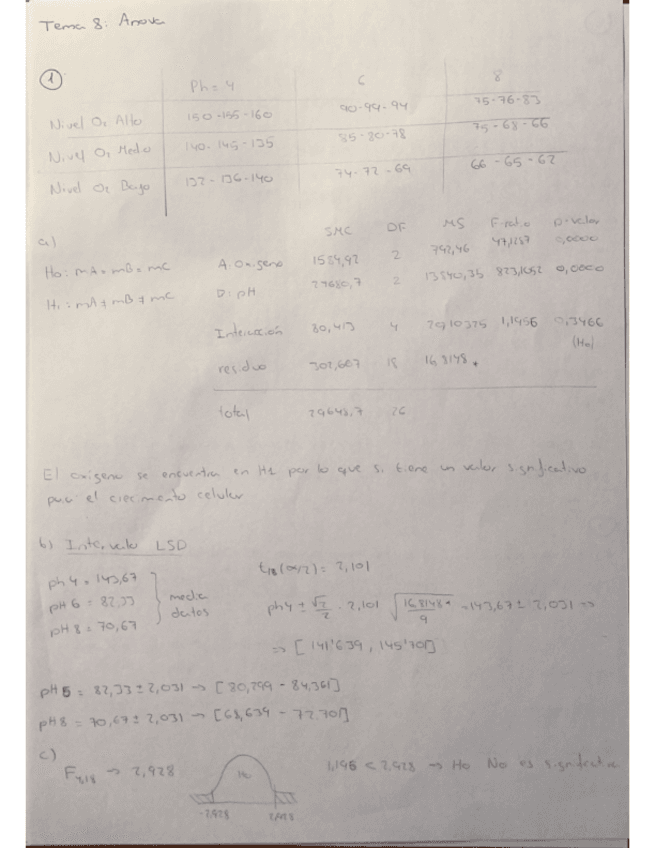 Tema 8: Anova
1
Ph = 4 6 8
Nivel O2 Alto 150-155-160 90-94-94 75-76-83
Nivel O2 Medio 140-145-135 85-80-78 75-68-66
Nivel O2 Bajo 132-136-140 74-72-69 66-65-62
a)
SMC DF MS F-ratio p-valor
H0: mA = mB = mC A: Oxigeno 1584,92 2 792,46 47,1287 0,0000
H1: mA ≠ mB ≠ mC pH 27680,7 2 13840,35 823,1052 0,0000
Interacción 80,413 4 1,1956 0,3466
(H0)
residuo 302,667 18 16,8148
total 29648,7 26
El oxigeno se encuentra en H1 por lo que si tiene un valor significativo
para el crecimiento celular
b) Intervalo LSD
t18(α/2) = 2,101
ph 4 = 143,67
pH 6 = 82,33 media datos
pH 8 = 70,67
ph4 ± √2/2 · 2,101 √16,8148/9 = 143,67 ± 2,031 =>
=> [141'639, 145'701]
pH 6 = 82,33 ± 2,031 → [80,299 - 84,361]
pH 8 = 70,67 ± 2,031 → [68,639 - 72,701]
c)
F4,18 → 2,928 H0 1,196 < 2,928 → H0 No es significativa
-2,928 2,928